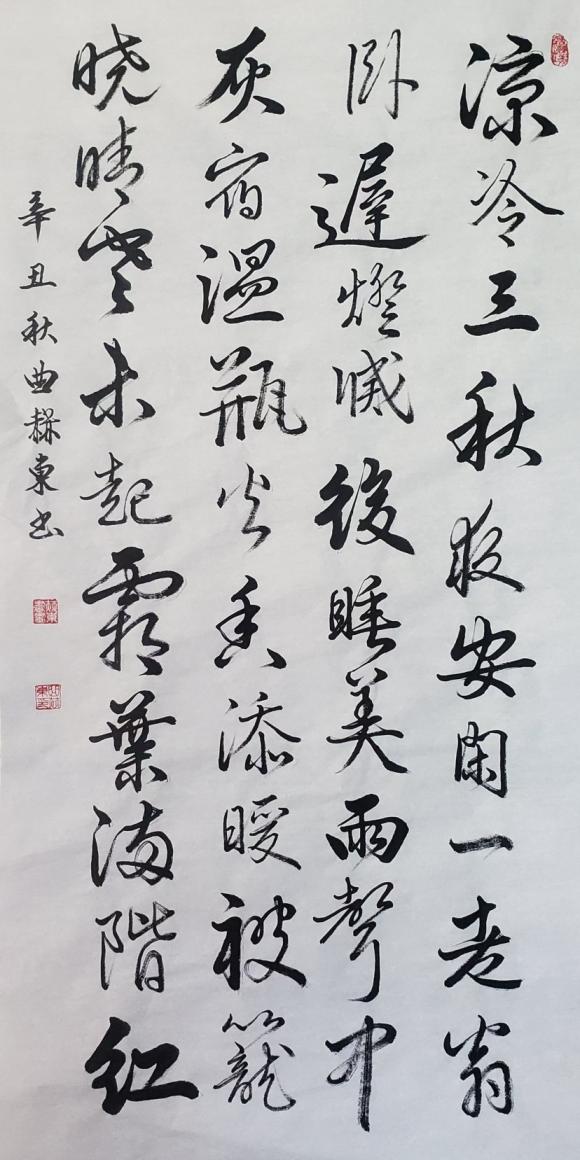 涼冷三秋夜安閑一老翁
卧遲燈滅後睡美雨聲中
灰宿溫瓶火香添暖被籠
曉晴寒未起霜葉滿階紅
辛丑秋曲東书